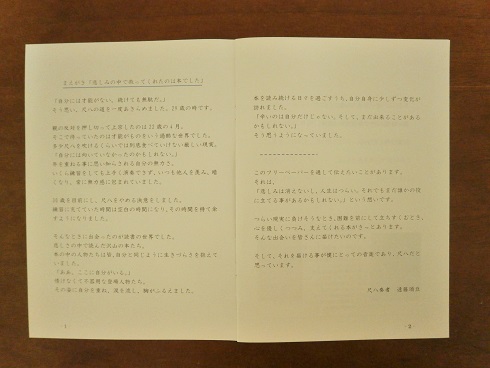 まえがき「悲しみの中で救ってくれたのは本でした」
「自分には才能がない。続けても無駄だ。」
そう思い、尺八の道を一度あきらめました。25歳の時です。
親の反対を押し切って上京したのは22歳の4月。
そこで待っていたのは才能がものをいう過酷な世界でした。
「自分には向いていなかったのかもしれない。」
年を重ねる事に思い知らされる自分の無力さ。
いくら練習をしても上手く演奏できず、いつも他人を羨み、嘆
くなり、常に無力感に苛まれていました。
尺八をやめる決意をしました。
練習に充てていた時間は空白の時間になり、その時間を持て余
すようになりました。
そんなときに出会ったのが読書の世界でした。
悲しさの中で読んだ沢山の本たち。
本の中の人物たちは皆、自分と同じように生きづらさを抱えて
いました。
「ああ、ここに自分がいる。」
情けなくても懸命な登場人物たち。
その姿に自分を重ね、涙を流し、胸がふるえました。
1
本を読み続ける日々を過ごすうち、自分自身に少しずつ変化が
訪れました。
「辛いのは自分だけじゃない。そして、まだ出来ることがある
かもしれない。」
そう思うようになっていました。
---------------
このフリーペーパーを通して伝えたいことがあります。
それは、
「悲しみは消えないし、人生はつらい。それでもまだ誰かの役
に立てる事があるかもしれない。」という想いです。
つらい現実に負けそうなとき、困難を前にして立ちすくむとき、
心を優しくつつみ、支えてくれる本がきっとあります。
そんな出会いを皆さんに届けたいのです。
そして、それを届ける事が僕にとっての音楽であり、尺八だと
思っています。
尺八奏者
2